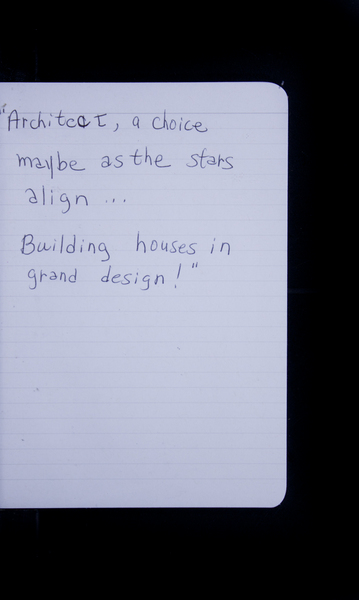 "Architect, a choice
maybe as the stars
align ...
Building houses in
grand design!"